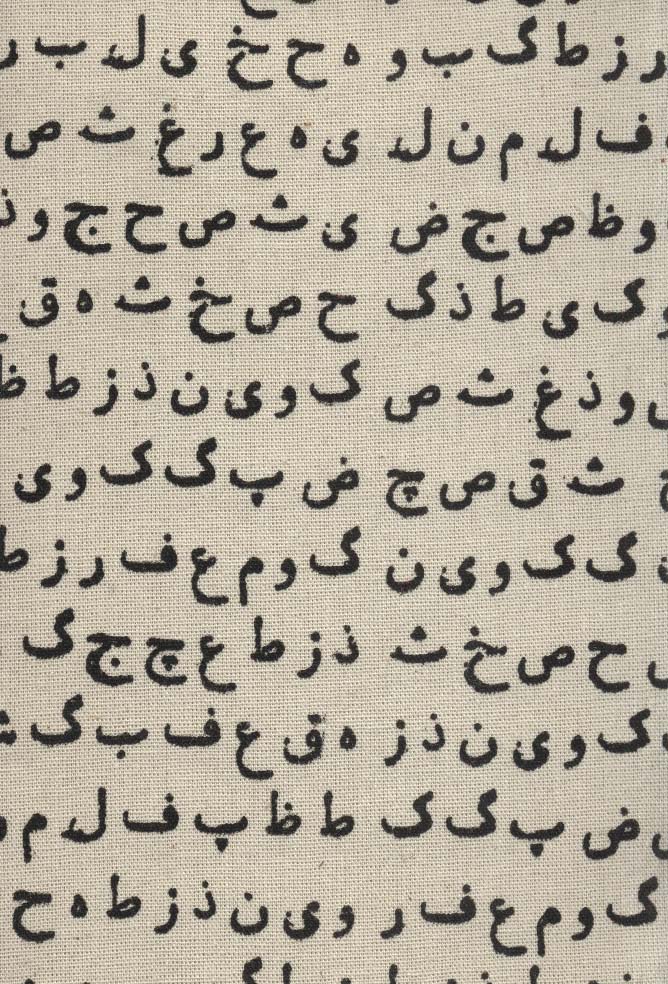 ر ز ط گ ب و ه ح خ ی ل ب ر
ف ل م ن ل ی ه ع ر غ ث ص
و ظ ص ج ض ی ث ص ح ج و ذ
و ک ی ط ذ گ ح ص خ ث ه ق
و ذ غ ث ص ک و ی ن ذ ز ط ظ
ث ق ص چ ض پ گ ک و ی
ن گ ک و ی ن گ و م ع ف ر ز ط
ح ص خ ث ذ ز ط ع چ ج گ
ک و ی ن ذ ز ه ق ع ف ب گ ش
ض پ گ ک ط ظ پ ف ل م و
گ و م ع ف ر و ی ن ذ ز ط ه ح